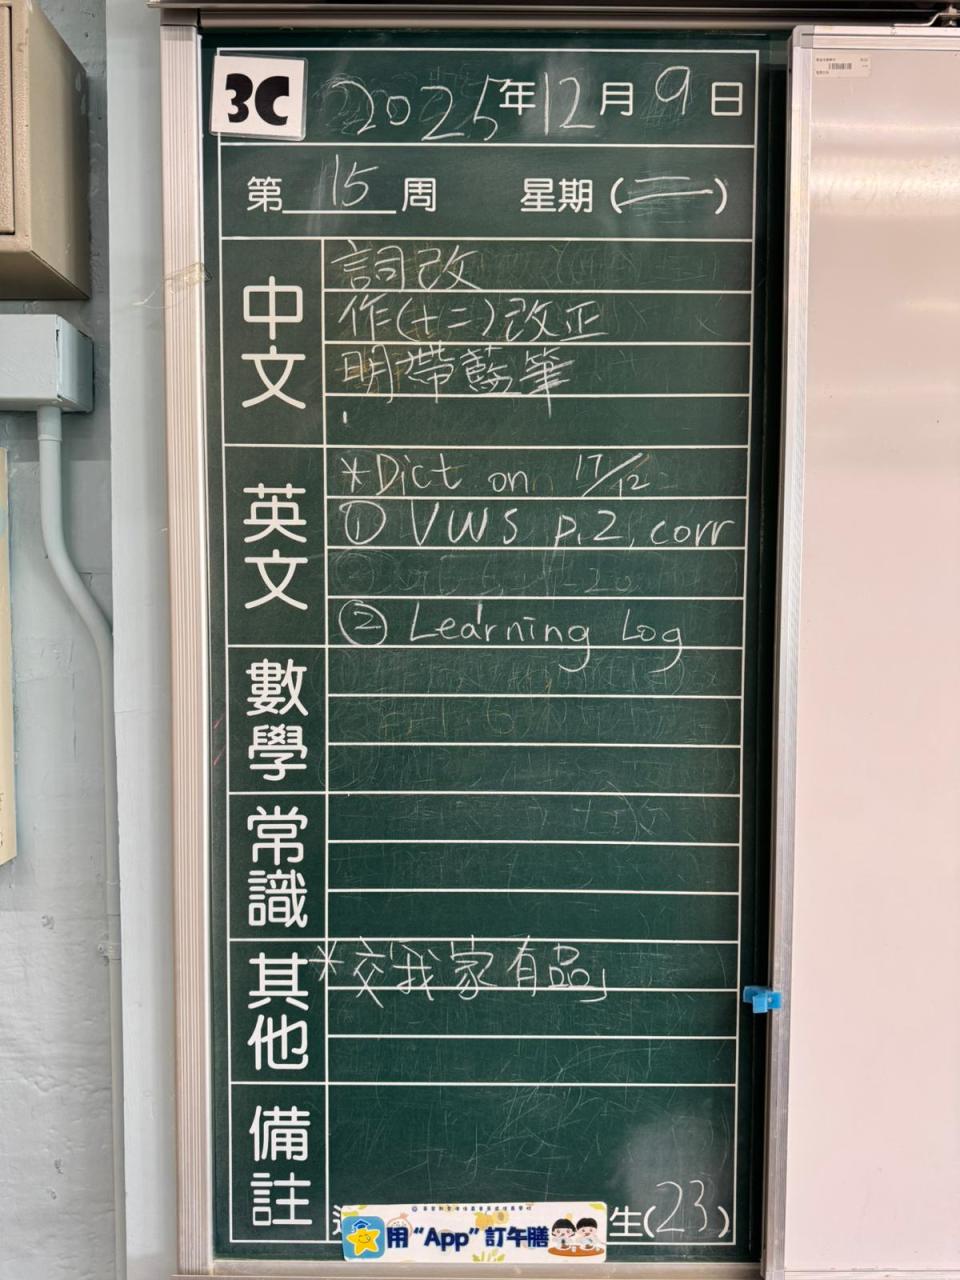 3C
2025年12月9日
第15周 星期(二)
中文
詞改
作(十二)改正
明帶藍筆
英文
*Dict on 17/12
① VWS p.2, corr
② Learning Log
數學
常識
其他
*交「我家有品」
備註
生(23)
用“App”訂午膳